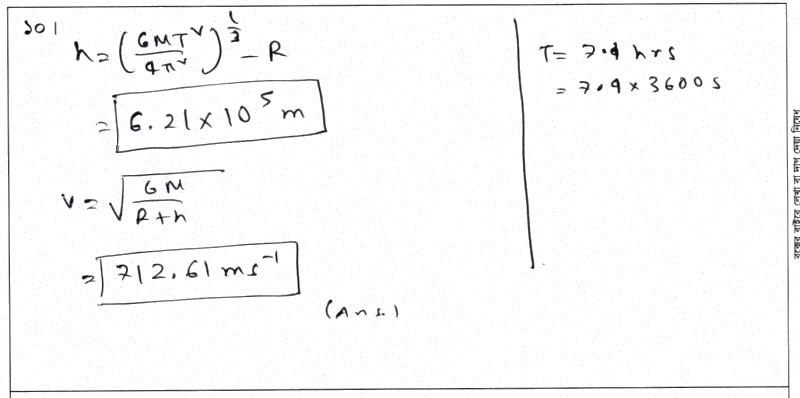 ১০।
h = (GMT²/4π²)^(1/3) – R
= 6.21 × 10⁵ m
v = √(GM/(R+h))
= 712.61 ms⁻¹
(Ans.)
T = 7.4 hrs
= 7.4 × 3600 s
বক্সের বাইরে লেখা বা দাগ দেয়া নিষেধ